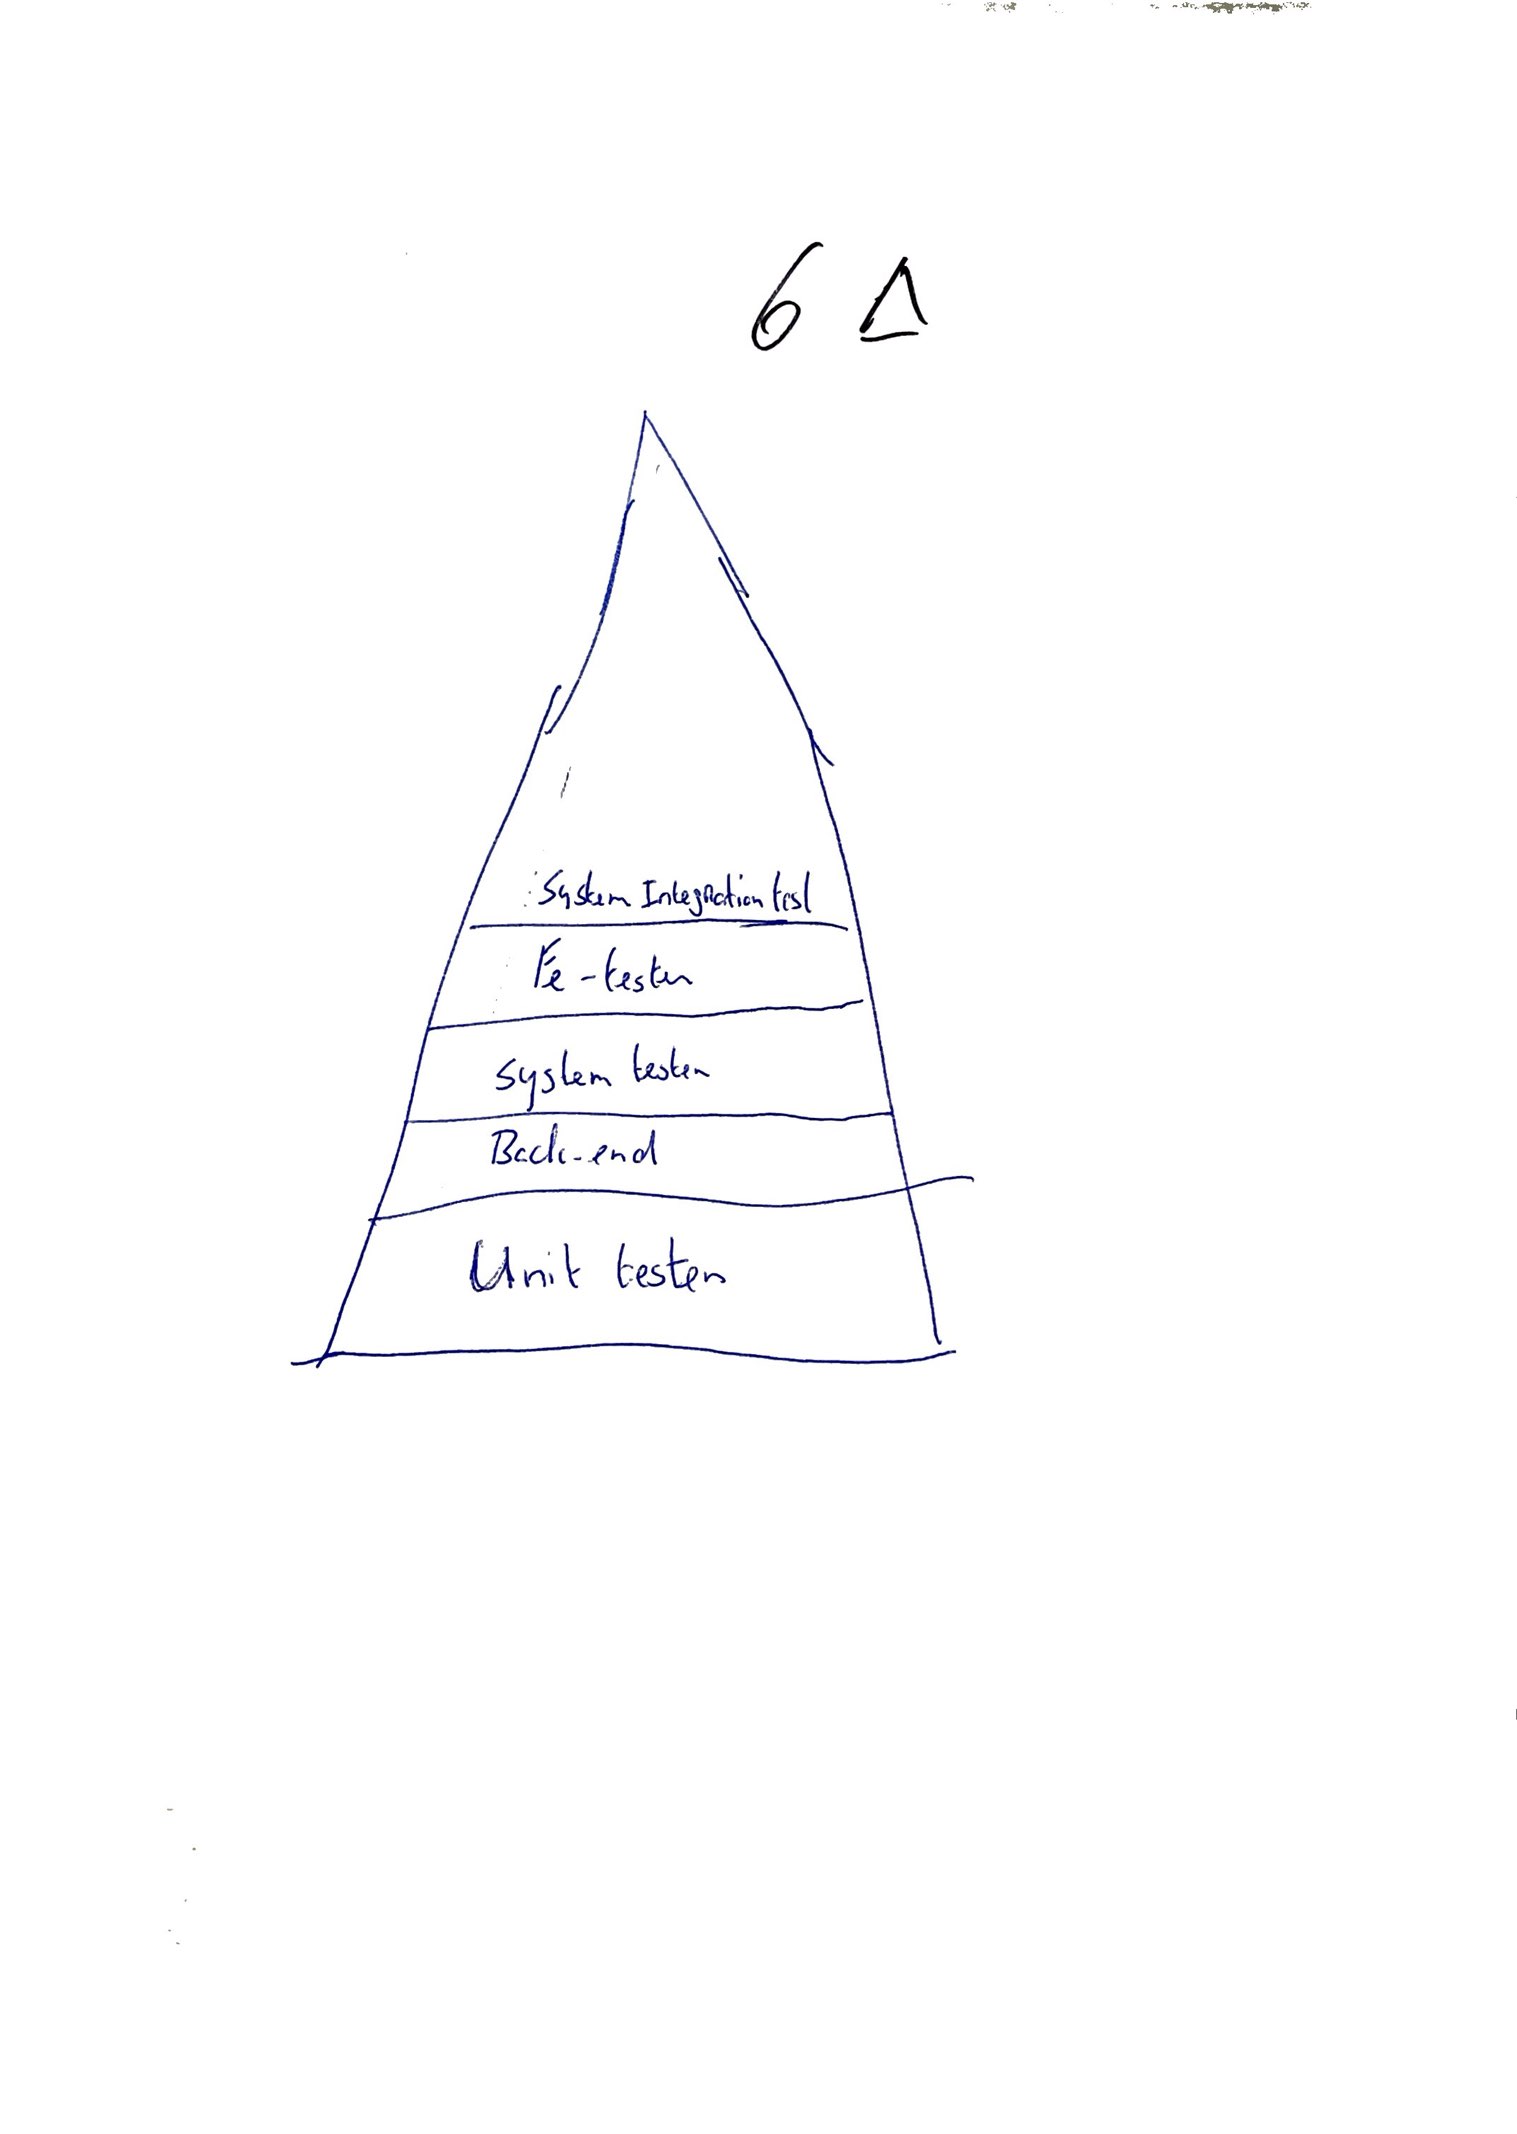 6 Δ
System Integration test
Fe-testen
System testen
Back-end
Unit testen